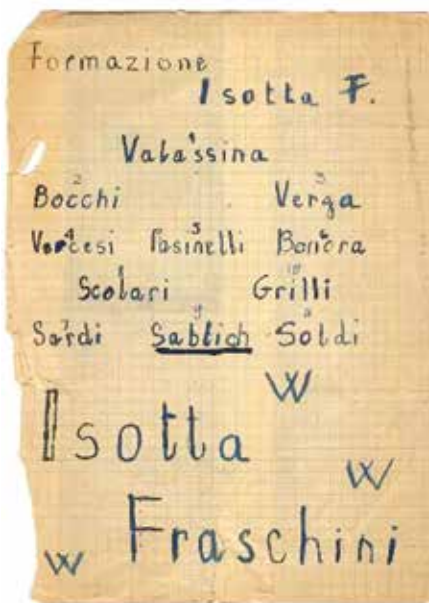 Formazione
Isotta F.
Valassina
2 3
Bocchi Verga
4 5 6
Vercesi Pasinelli Bonora
10
Scolari Grilli
7 9
Sardi Sablich Soldi
W
Isotta
W
Fraschini
W